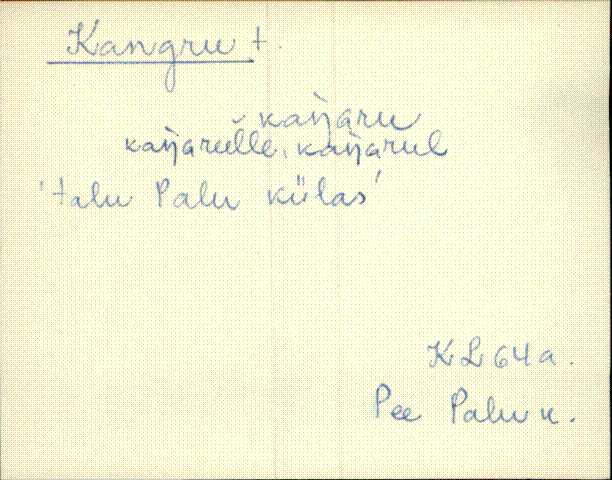 Kangru t.
kaŋaru
kaŋarulle, kaŋarul
'talu Palu külas'
KL 64a.
Pee Palu k.